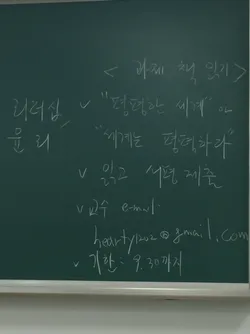 < 과제 책 읽기 >
리더십 윤리
✓ "평평한 세계" or
"세계는 평평하다"
✓ 읽고 서평 제출
✓ 교수 e-mail:
hearty1202@gmail.com
✓ 기한: 9.30까지